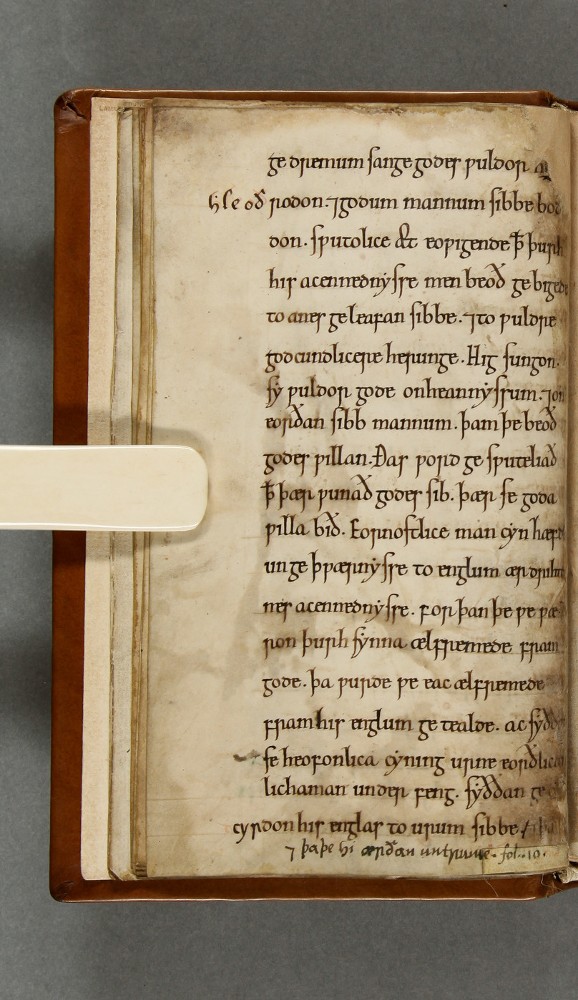 ge dremum sange godes ƿuldor
hleoðrodon. ⁊godum mannum sibbe bo
don. sƿutolice &t eoƿigende ꝥ þurh
his acennednẏsse men beoð gebiged
to anes geleafan sibbe. ⁊to ƿuldre
godcundlicere herunge. Hig sungon.
sẏ ƿuldor gode onheannẏssum. ⁊on
eorðan sibb mannum. þam þe beoð
godes ƿillan. Ðas ƿord ge sƿuteliað
ꝥ þær ƿunað godes sib. þær se goda
ƿilla bið. Eornostlice man cẏn hæfde
un ge þƿærnẏsse to englum ær drihte
nes acennednẏsse. For þan þe ƿe ƿæ
ron þurh sẏnna ælfremede fram
gode. þa ƿurde ƿe eac ælfremede
fram his englum ge tealde. ac sẏððan
se heofonlica cẏning urne eorðlican
lichaman under feng. sẏððan ge
cyrdon his englas to urum sibbe
⁊ þaþe hi ærðan untrume. fol. 10.